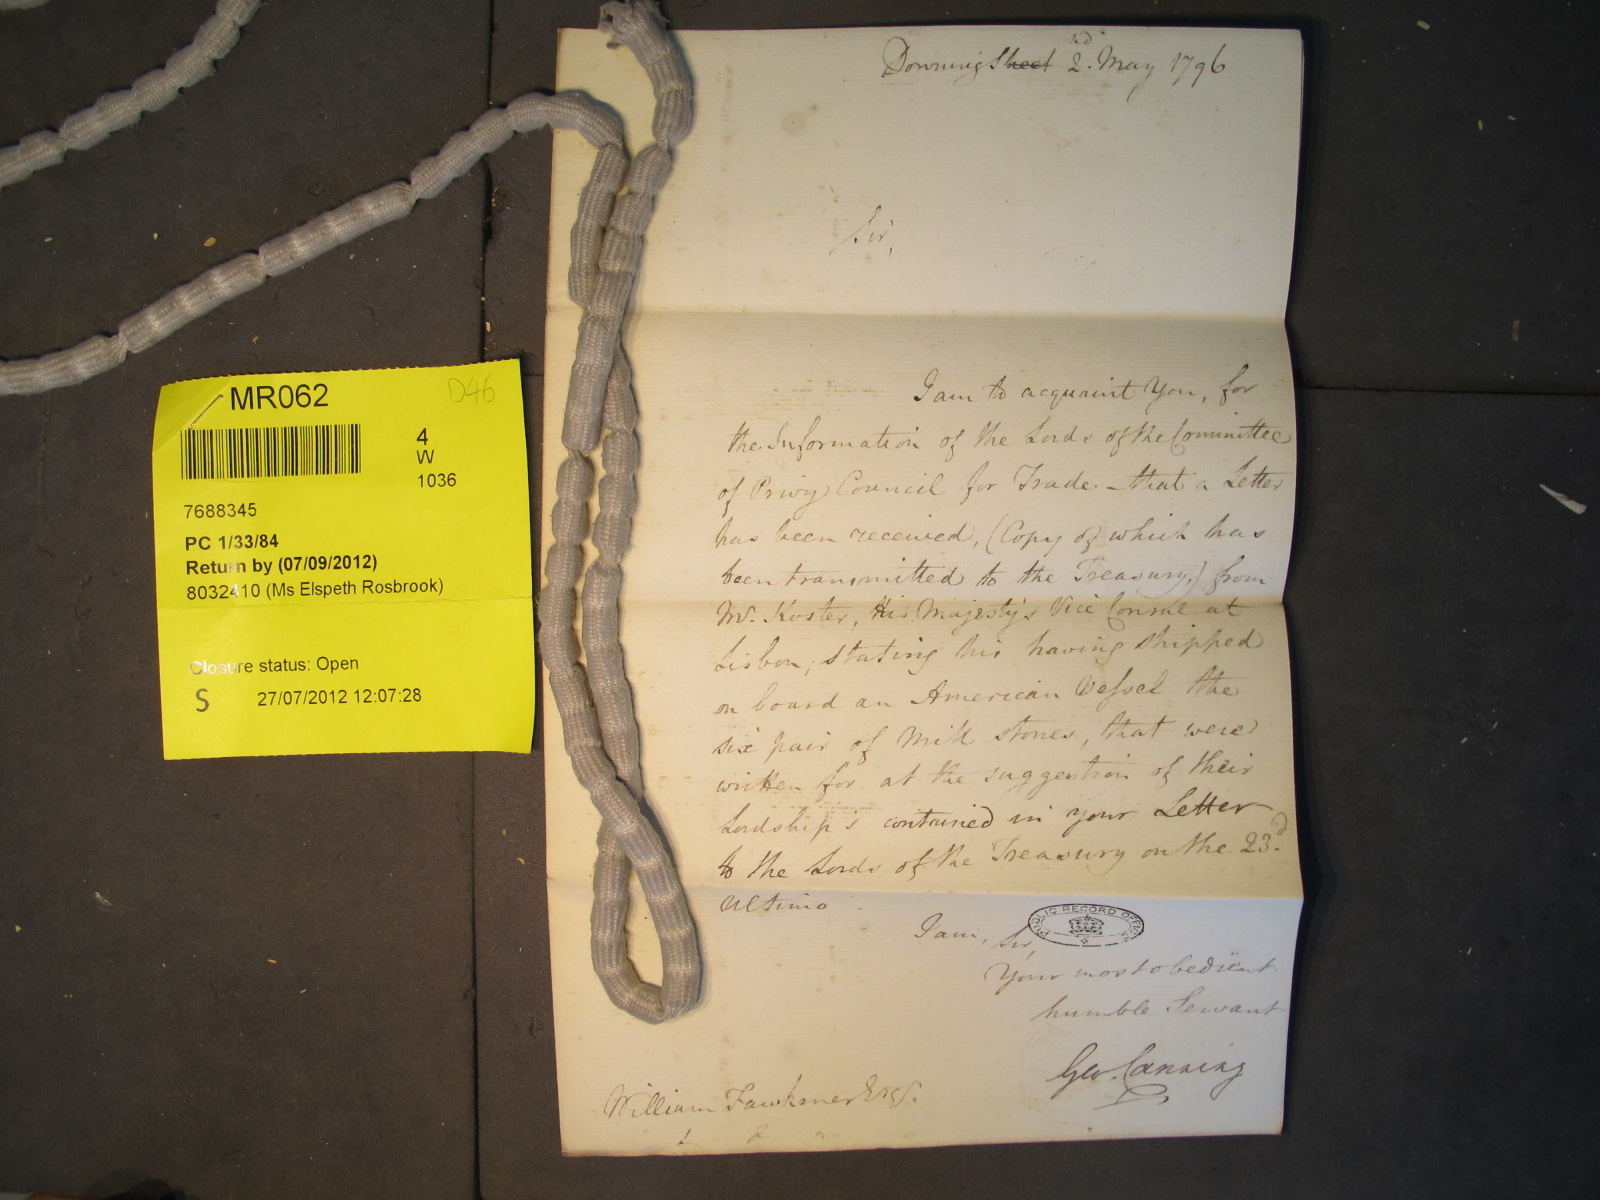 Downing Street 2.nd May 1796
Sir,
I am to acquaint You, for
the Information of the Lords of the Committee
of Privy Council for Trade - that a Letter
has been received, (Copy of which has
been transmitted to the Treasury,) from
Mr. Koster, His Majesty's Vice Consul at
Lisbon, stating his having shipped
on board an American Vessel the
six pair of Mill stones, that were
written for at the suggestion of their
Lordship's contained in your Letter
to the Lords of the Treasury on the 23.d
Ultimo.
I am, Sir,
Your most obedient
humble Servant
Geo. Canning
William Fawkener Esqr.
PUBLIC RECORD OFFICE
MR062
D46
4
W
1036
7688345
PC 1/33/84
Return by (07/09/2012)
8032410 (Ms Elspeth Rosbrook)
Closure status: Open
S 27/07/2012 12:07:28